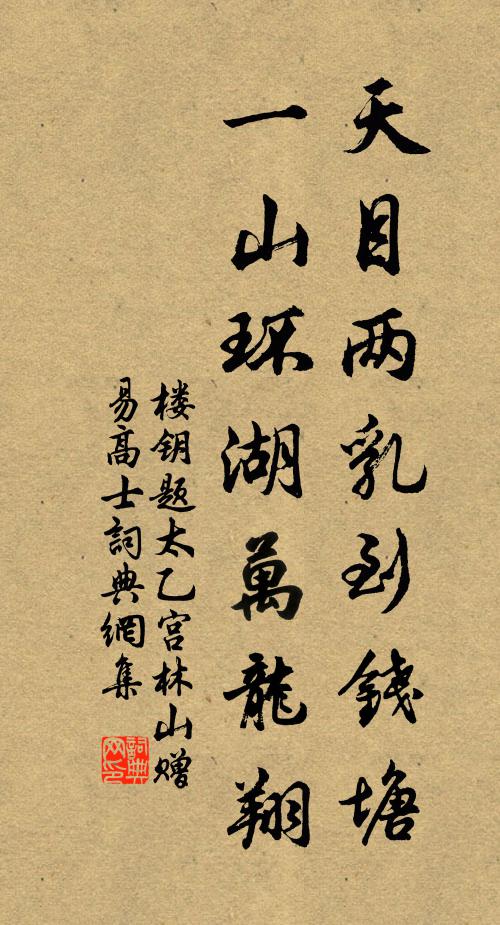 天目两乳到錢塘
一山环湖萬龍翔
楼钥题太乙宫林山赠
易高士詞典網集
詞典
网印